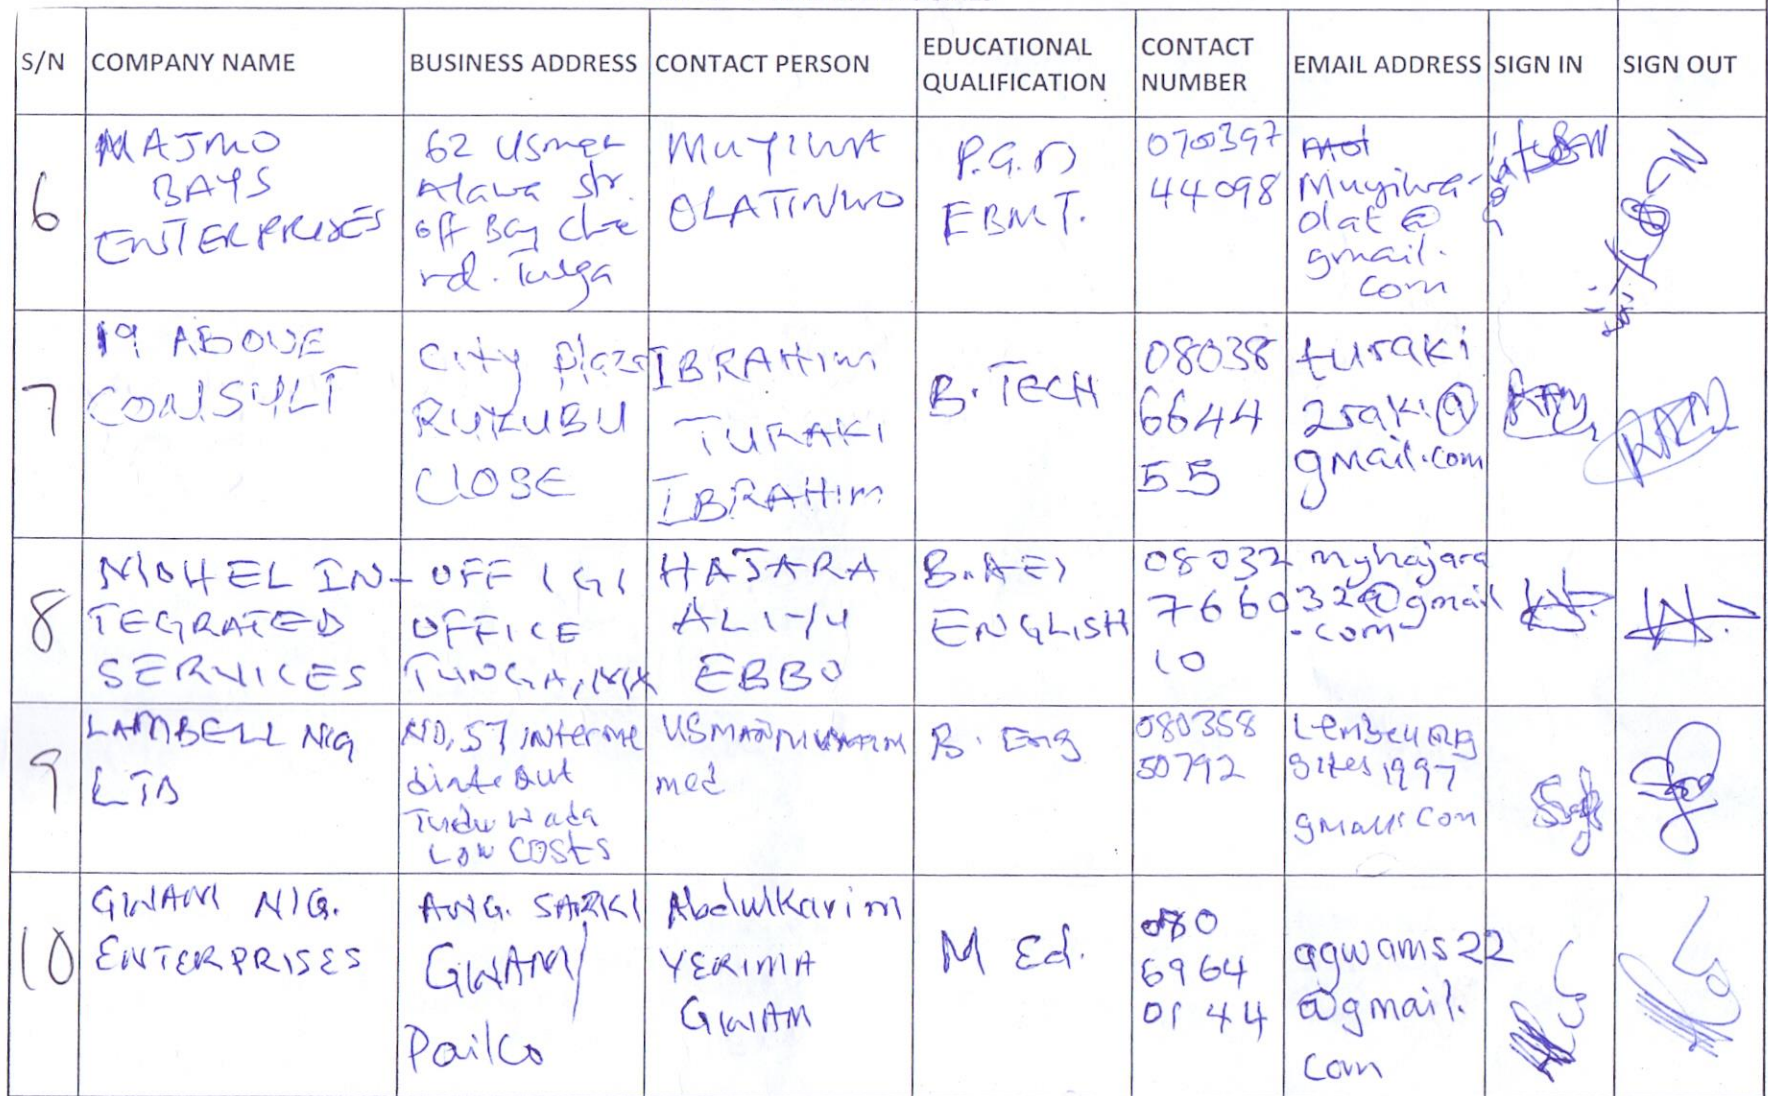 S/N COMPANY NAME BUSINESS ADDRESS CONTACT PERSON EDUCATIONAL QUALIFICATION CONTACT NUMBER EMAIL ADDRESS SIGN IN SIGN OUT
6
MAJMO
BAYS
ENTERPRISES
62 Usman
Alawa str.
off Bay
rd. Tunga
MUYIWA
OLATINWO
P.G.D
EBMT.
070397
44098
Muyiwa-
olat@
gmail.
com
7
19 ABOVE
CONSULT
City Plaza
RUKUBU
CLOSE
IBRAHIM
TURAKI
IBRAHIM
B. TECH
08038
6644
55
turaki
2raki@
gmail.com
8
NIOHEL IN-
TEGRATED
SERVICES
OFF IGI
OFFICE
TUNGA,
HAJARA
ALIYU
EBBO
ENGLISH
08032
7660
10
myhajara
32@gmail
.com
9
LAMBELL NIG
LTD
NO, 57 interme
diate Qut
Tudu Wada
Low COSTS
USMAN
med
B. Eng
080358
50792
sites 1997
10
GWAM NIG.
ENTERPRISES
ANG. SARKI
GWAM/
Paiko
Abdulkarim
YERIMA
GWAM
M Ed.
080
6964
0144
agwams22
@gmail.
com